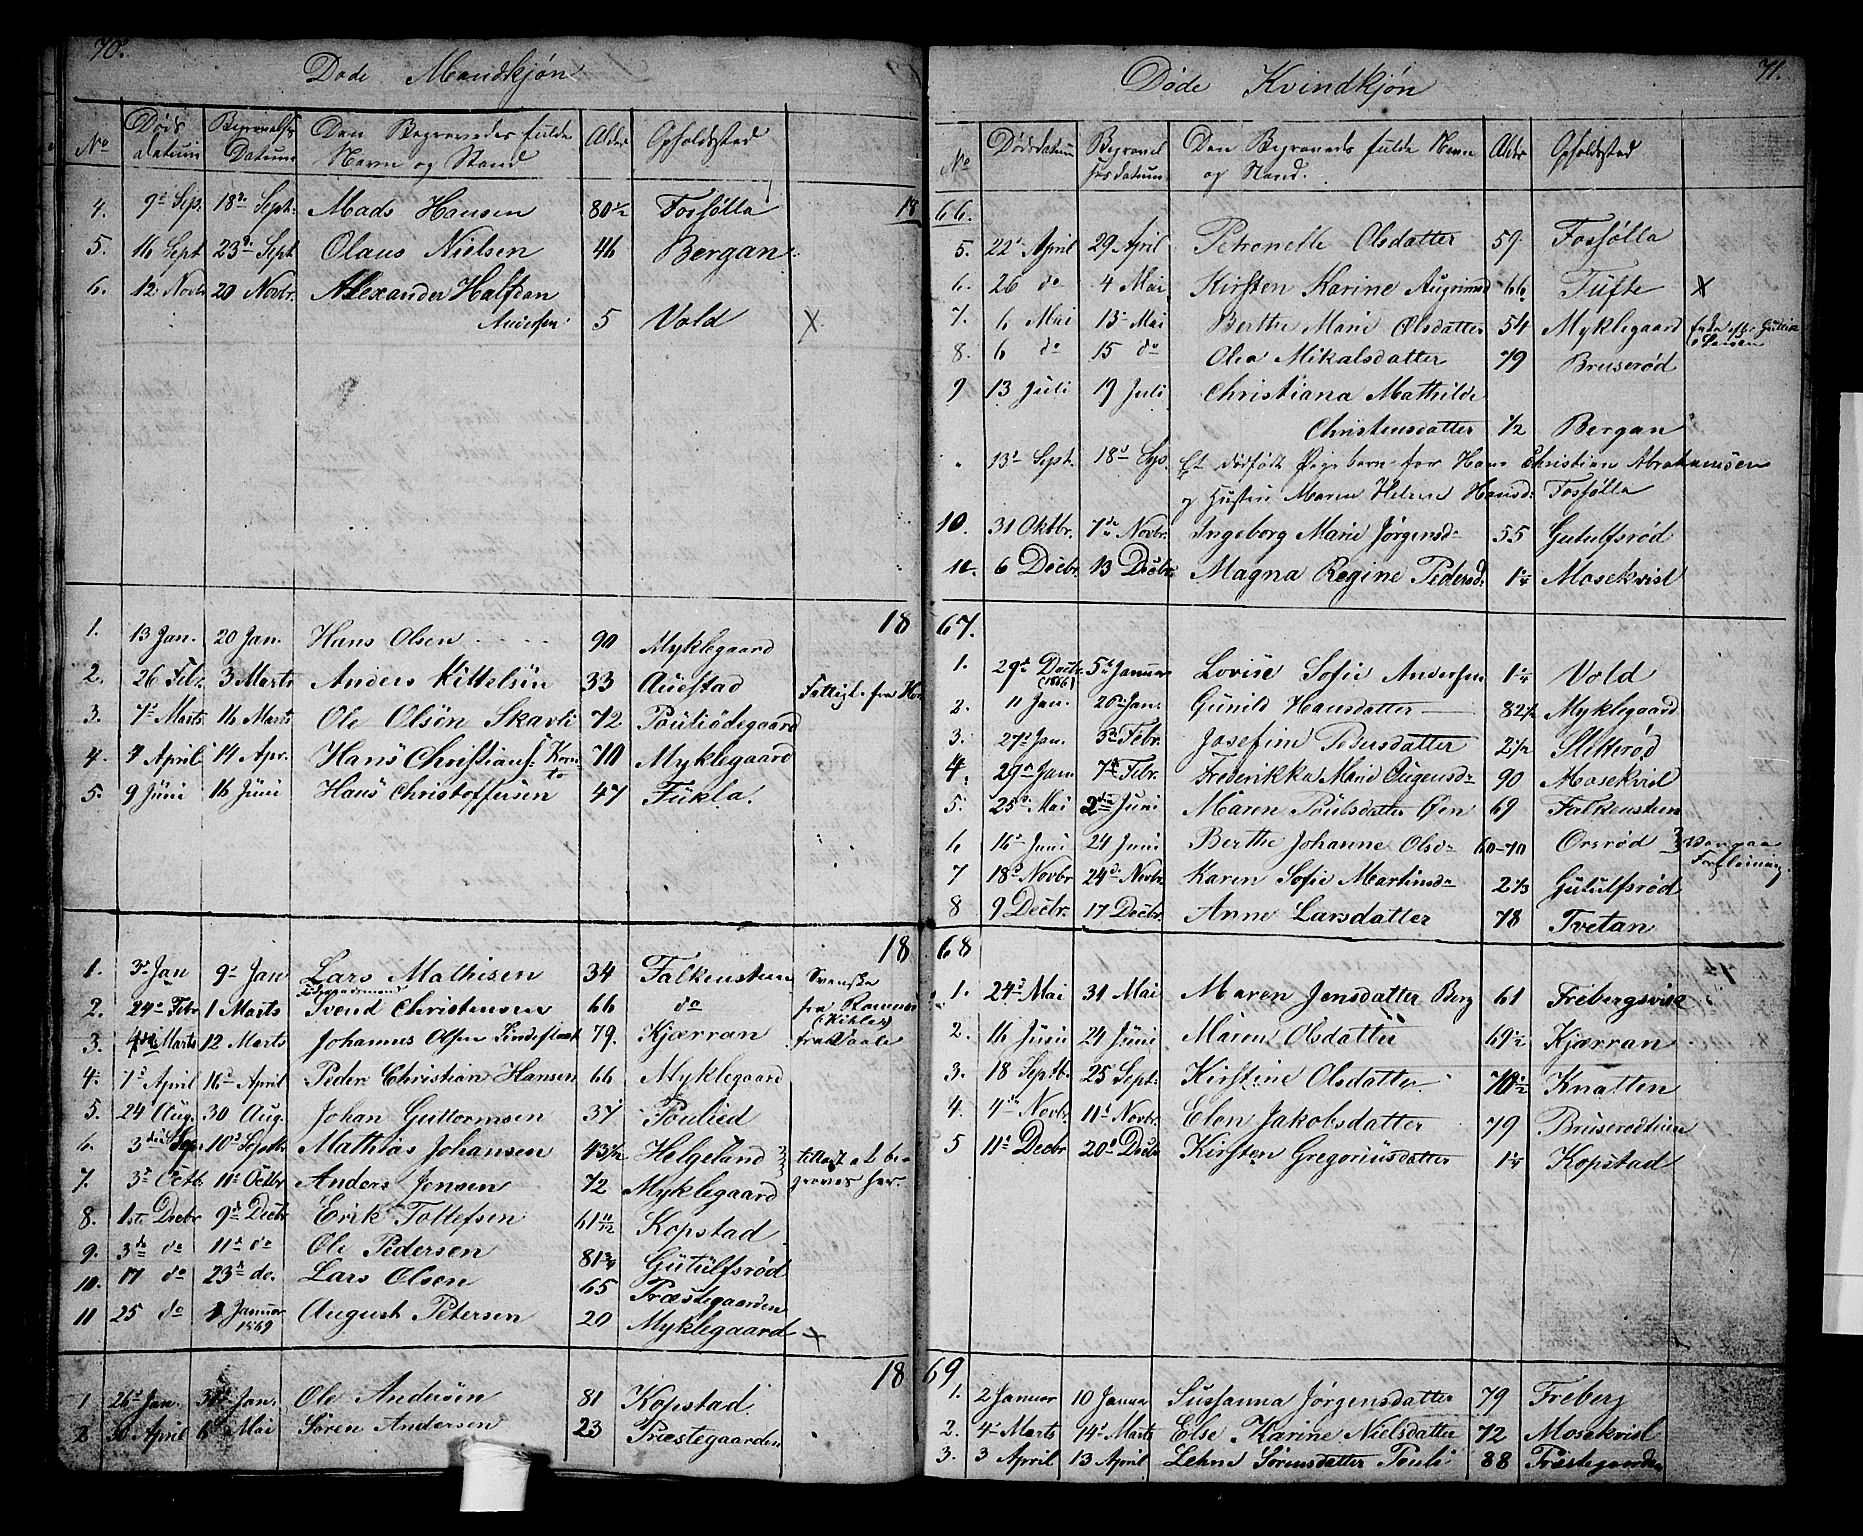 70.
Døde Mandkjøn
No Døds datum Begravelses Datum Den Begravedes fulde Navn og Stand Alder Opholdssted
18
4. 9d Sep. 18d Sept. Mads Hansen 80½ Fossølla
5. 16 Sept 23d Sept Olaus Nielsen 46 Bergan
6. 12 Novbr 20 Novbr. Alexander Halfdan
Andersen 5 Vold X
18
1. 13 Jan. 20 Jan. Hans Olsen 90 Myklegaard
2. 26 Febr. 3 Marts Anders Kittelsen 33 Auestad Fattigl. fra
3. 7d Marts 16 Marts Ole Olsøn Skavli 72 Poulsødegaard
4. 4 April 14 Apr. Hans Christians. 70 Myklegaard
5. 9 Juni 16 Juni Hans Christoffersen 47 Fukla.
18
1. 3d Jan 9d Jan Lars Mathisen 34 Falkensteen Svenske
2. 24d Febr 1 Marts Svend Christensen 66 do fra Ramnes
3. Marts 12 Marts Johannes Olsen Lindefladt 79. Kjærran fra Vaale
4. 7d April 16d April Peder Christian Hansen 66 Myklegaard
5. 24 Aug. 30 Aug. Johan Guttormsen 37 Poulied
6. 3die Sepr 10d Septbr Mathias Johansen 43 Helgeland tilladt at be-
7. 3d Octb. 11d Octbr Anders Jensen 72 Myklegaard graves her.
8. 1ste Decbr 9d Decbr Erik Tollefsen 61 11/12 Kopstad
9. 3die do 11d do Ole Pedersen 81¾ Gutulfsrød
10. 17 do 23d do. Lars Olsen 65 Præstegaarden
11 25 do 1 Januar 1869 August Petersen 20 Myklegaard X
18
1 26d Jan. 31d Jan. Ole Andersen 81 Kopstad
2 30 April 6 Mai Søren Andersen 23 Præstegaarden
71.
Døde Kvindkjøn
No Dødsdatum Begravelsesdatum Den Begravedes fulde Navn og Stand. Alder Opholdssted
66.
5. 22d April 29 April Petronelle Olsdatter 59 Fossølla
6. 26 do 4 Mai Kirsten Karine Augrimsd 66 Tufte X
7. 6 Mai 13d Mai Berthe Marie Olsdatter 54 Myklegaard Enke efter
8. 6 do 15 do Olea Mikalsdatter 79 Bruserød
9 13 Juli 19 Juli Christiana Mathilde
Christensdatter ½ Bergan
" 13d Sept. 18d Sep. Et dødfødt Pigebarn for Hans Christian Abrahamsen
og Hustru Maren Helene Hansd. Fossølla
10. 31 Oktbr. 7de Novbr. Ingeborg Marie Jørgensdr 55 Gutulfsrød
11. 6 Decbr. 13 Decbr Magna Regine Pedersd. 1¼ Mosekvist
67.
1. 29d Decbr. (1866) 5te Januar Lovise Sofie Andersen 1¼ Vold
2. 11 Jan. 20d Jan. Gunild Hansdatter 82½ Myklegaard
3. 27d Jan. 3d Febr. Josefine Pedersdatter 2½ Sletterød
4. 29d Jan. 7d Febr. Frederikka Marie Augensdr 90 Mosekvist
5. 25d Mai 2den Juni Maren Poulsdatter Øen 69 Falkensteen
6 16d Juni 24 Juni Berthe Johanne Olsdr 60-70 Orsrød
7 18d Novbr 24de Novbr. Karen Sofie Martinsdr 2⅓ Gutulfsrød
8 9 Decbr. 17 Decbr. Anne Larsdatter 78 Tvetan
68
1. 24d Mai 31 Mai Maren Jensdatter Berg 61 Frebergsvik
2. 16 Juni 24 Juni Maren Olsdatter 69½ Kjærran
3. 18 Septb. 25 Sept. Kirstine Olsdatter 70½ Knatten
4. 4d Novbr. 11d Novbr. Elen Jakobsdatter 79 Bruserødteien
5 11d Decbr 20d Decbr Kirsten Gregoriusdatter 1¼ Kopstad
69
1. 2 Januar 10 Januar Susanna Jørgensdatter 79 Freberg
2. 4d Marts 14d Marts Else Karine Nielsdatter 72 Mosekvist
3. 3 April 13 April Lehne Sørensdatter Pouli 88 Præstegaarden